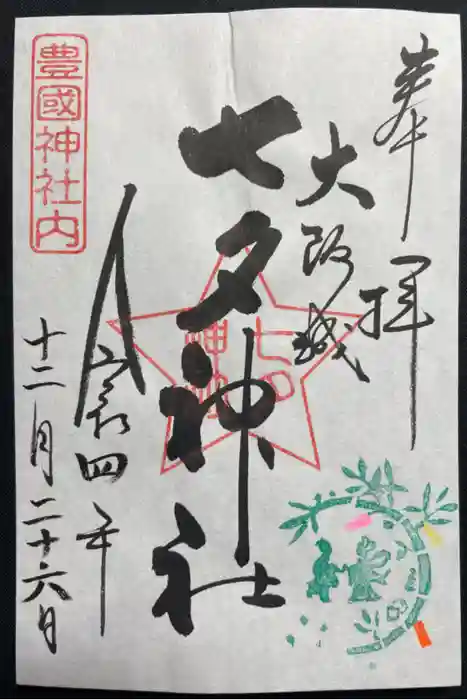 奉拝
大阪城
七夕神社
七夕神社
令和四年
十二月二十六日
豊國神社内